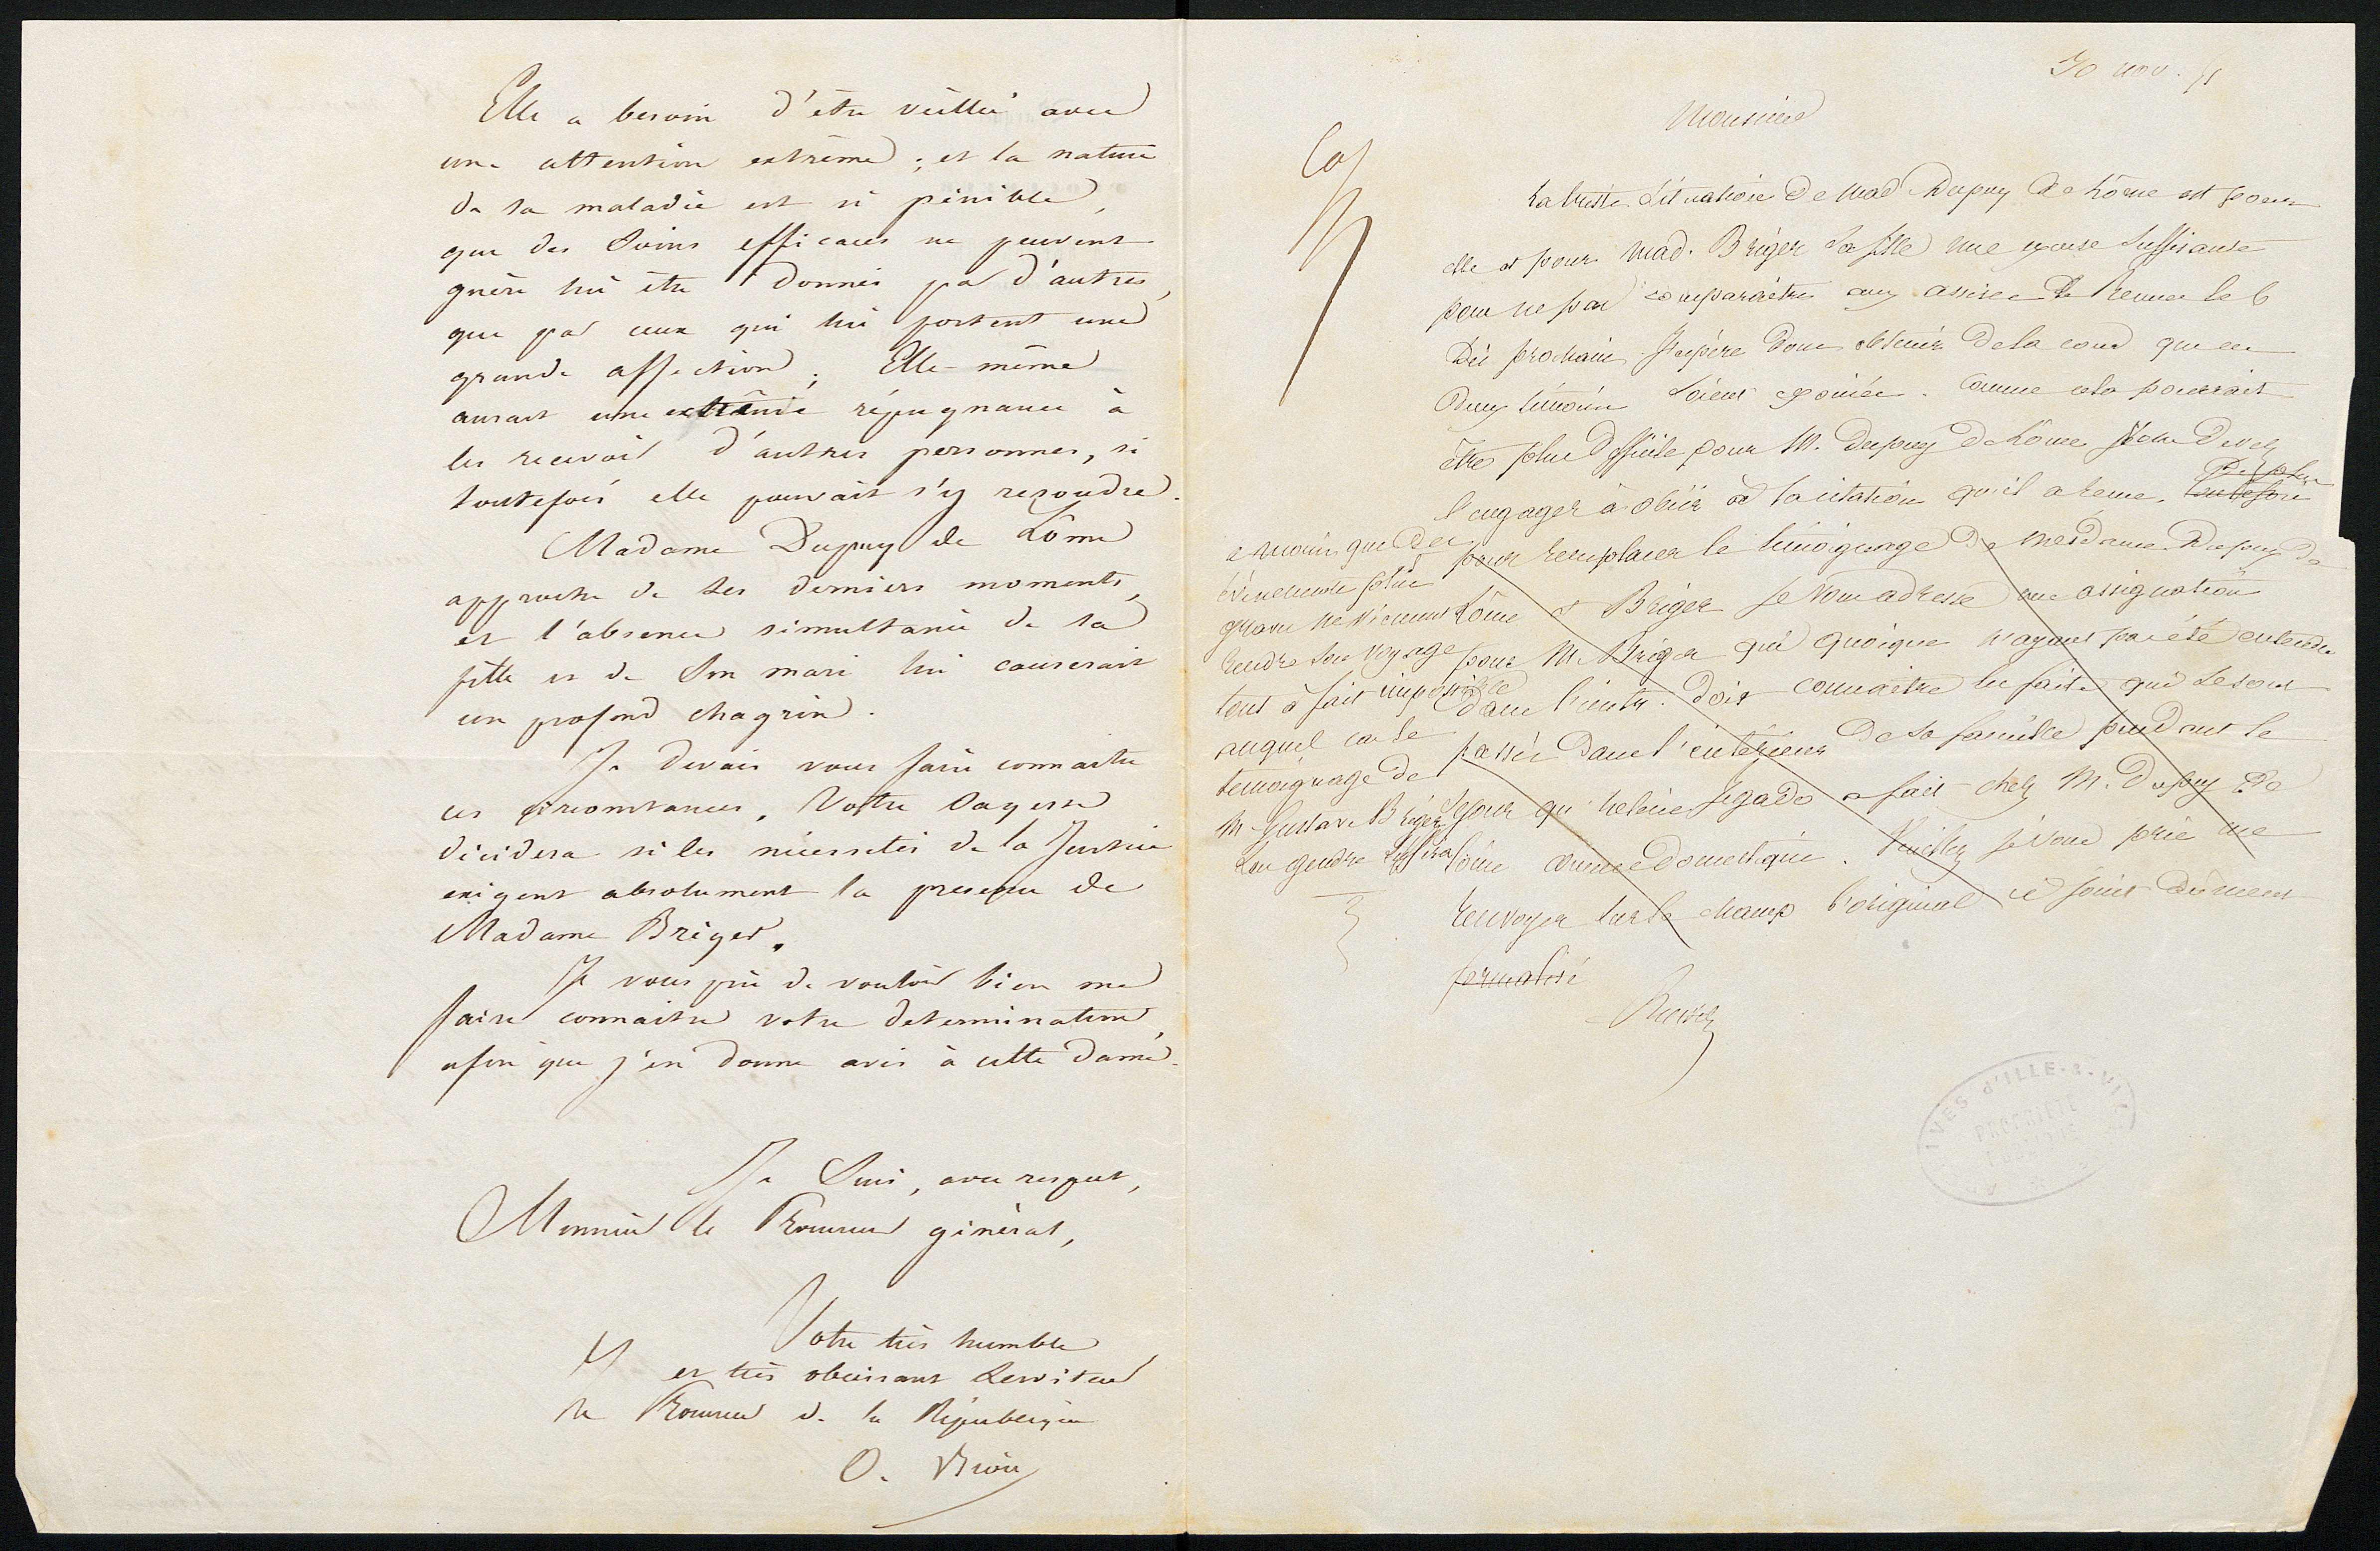 Elle a besoin d'être veillée avec
une attention extrême ; et la nature
de sa maladie est si pénible,
que des Soins efficaces ne peuvent
guère lui être donnés par d'autres,
que par ceux qui lui portent une
grande affection ; Elle-même
aurait une extrême répugnance à
les recevoir d'autres personnes, si
toutefois elle pouvait s'y resoudre.
Madame Dupuy de Lôme
approche de ses derniers moments,
et l'absence simultanée de sa
fille et de Son mari lui causerait
un profond chagrin.
Je devais vous faire connaitre
ces circonstances, Votre Sagesse
décidera si les nécessités de la Justice
exigent absolument la presence de
Madame Briger.
Je vous prie de vouloir bien me
faire connaitre votre determination,
afin que j'en donne avis à cette dame.
Je Suis, avec respect,
Monsieur le Procureur général,
Votre très humble
et très obéissant Serviteur
le Procureur de la République
30 nov. 51
Monsieur
La triste Situation de Mad Dupuy de Lôme est pour
elle et pour Mad. Briger Sa fille une excuse Suffisante
pour ne pas comparaitre aux assises de Rennes le 6
Déc prochain. J'espère donc obtenir de la cour que ces
Deux témoins Soient . Comme cela pourrait
être plus Difficile pour M. Dupuy de Lôme Vous Devez
l'engager à obéir à la citation qu'il a reçue,
à moins que des
évènements plus
graves ne viennent
rendre Son voyage
tout à fait impossible
auquel cas le
témoignage de
M Gustave Briger
Son gendre Suffira
pour remplacer le témoignage De mesdames Dupuy de
Lôme et Briger Je Vous adresse une assignation
pour M. Briger qui quoique n'ayant pas été entendu
dans l'instr. doit connaitre les faits qui Se sont
passés Dans l'intérieur De Sa famille pendant le
Séjour qu'helène Jegado a fait chez M. Dupuy De
Lôme comme Domestique. Veuillez je vous prie me
renvoyer Sur le champ l'original ci joint dûment
formalisé
ARCHIVES D'ILLE-&-VILAINE
PROPRIÉTÉ
PUBLIQUE